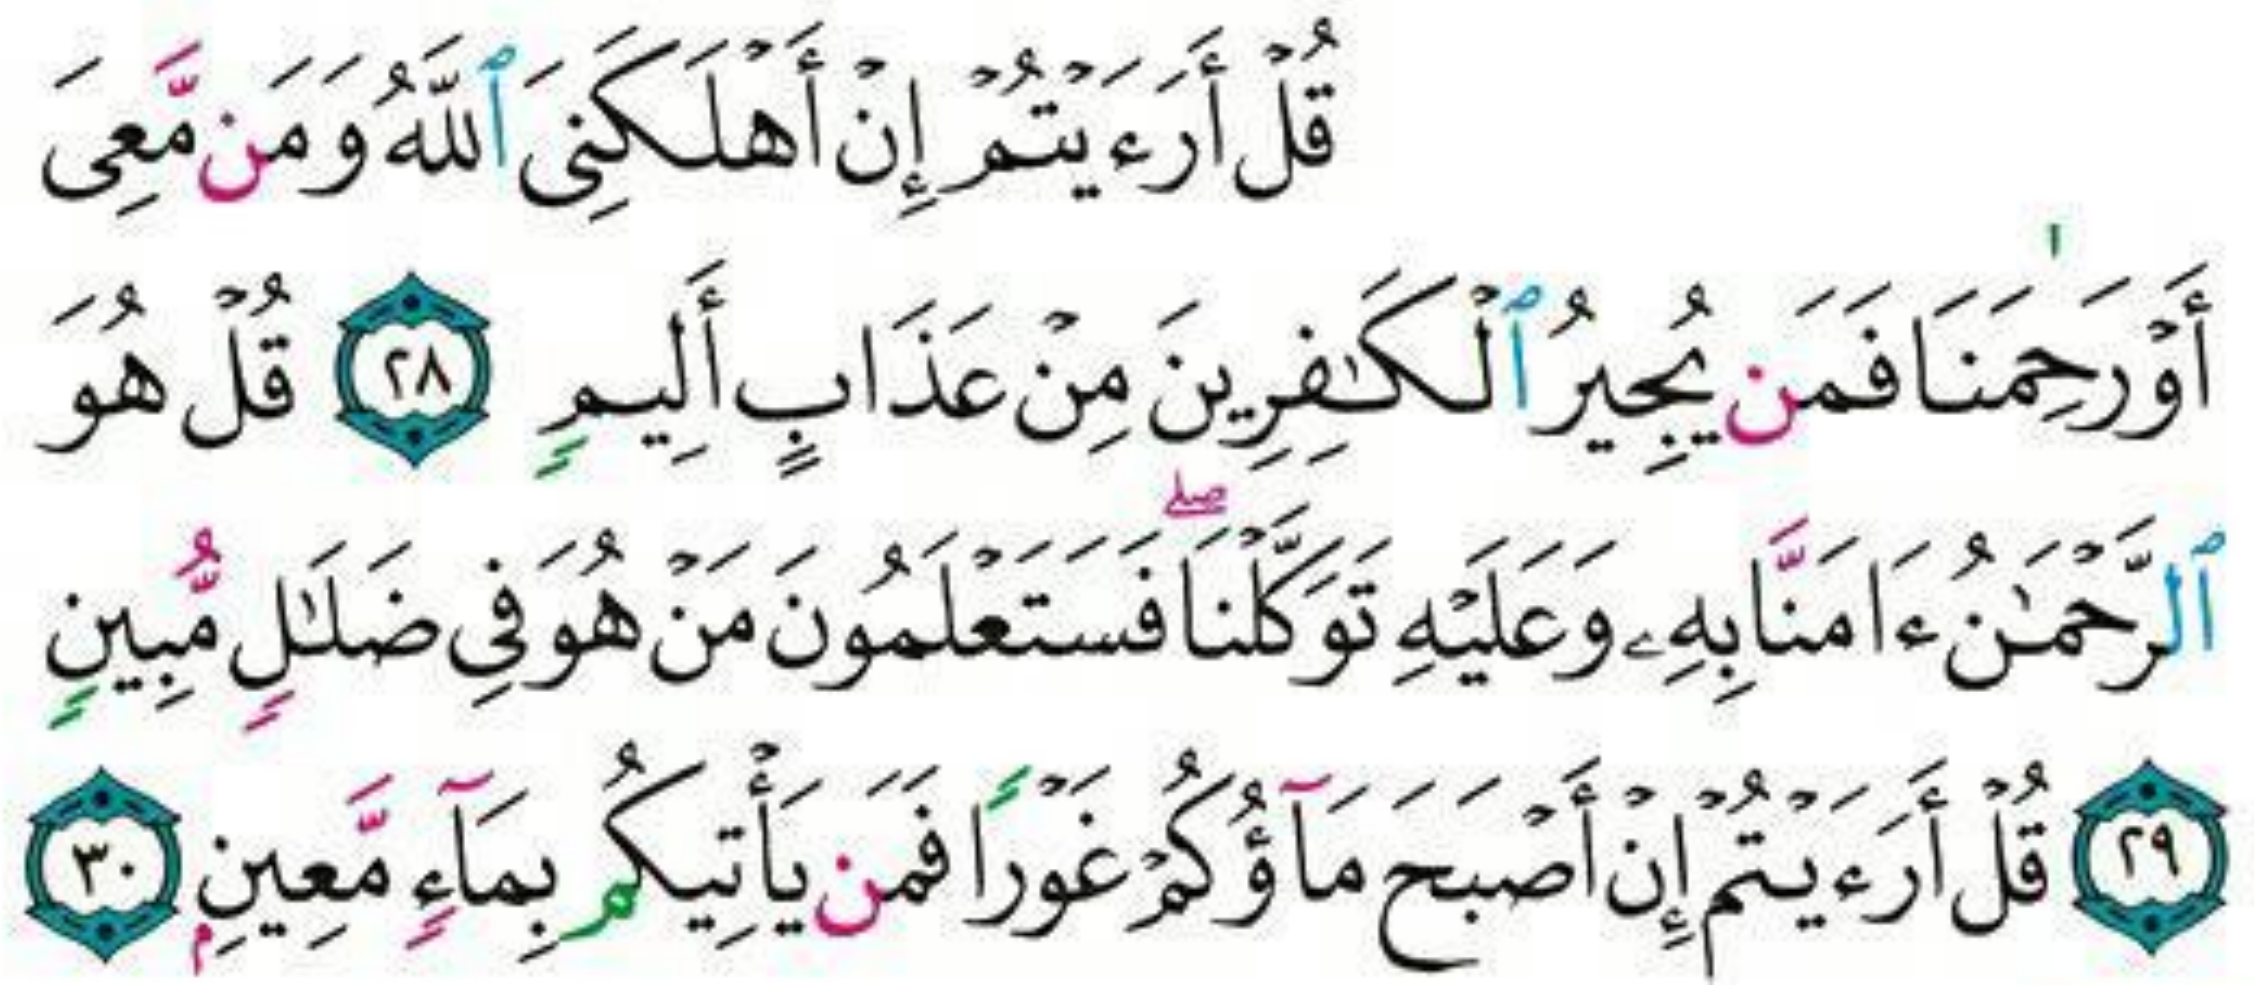 قُلْ أَرَءَيْتُمْ إِنْ أَهْلَكَنِىَ ٱللَّهُ وَمَن مَّعِىَ
أَوْ رَحِمَنَا فَمَن يُجِيرُ ٱلْكَـٰفِرِينَ مِنْ عَذَابٍ أَلِيمٍ ٢٨ قُلْ هُوَ
ٱلرَّحْمَـٰنُ ءَامَنَّا بِهِۦ وَعَلَيْهِ تَوَكَّلْنَا ۖ فَسَتَعْلَمُونَ مَنْ هُوَ فِى ضَلَـٰلٍ مُّبِينٍ
٢٩ قُلْ أَرَءَيْتُمْ إِنْ أَصْبَحَ مَآؤُكُمْ غَوْرًا فَمَن يَأْتِيكُم بِمَآءٍ مَّعِينٍۭ ٣٠